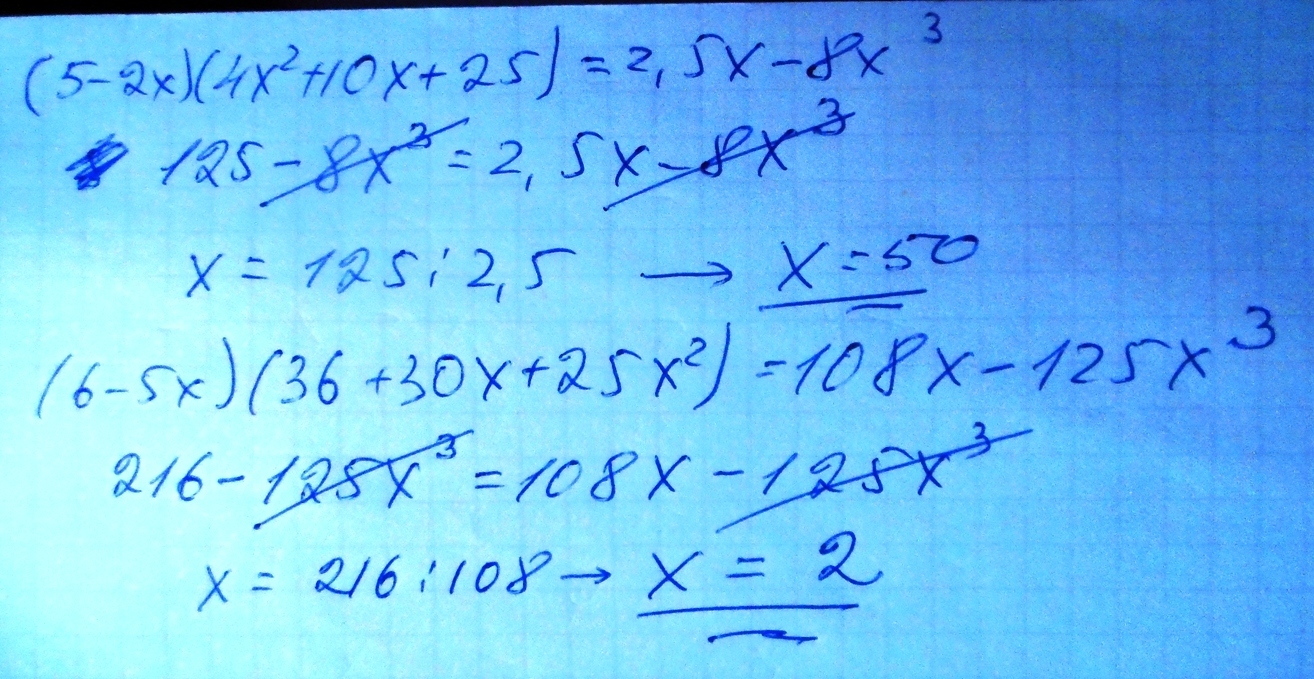 (5-2x)(4x²+10x+25)=2,5x-8x³
125-8x³=2,5x-8x³
x=125:2,5 → x=50
(6-5x)(36+30x+25x²)=108x-125x³
216-125x³=108x-125x³
x=216:108→ x=2